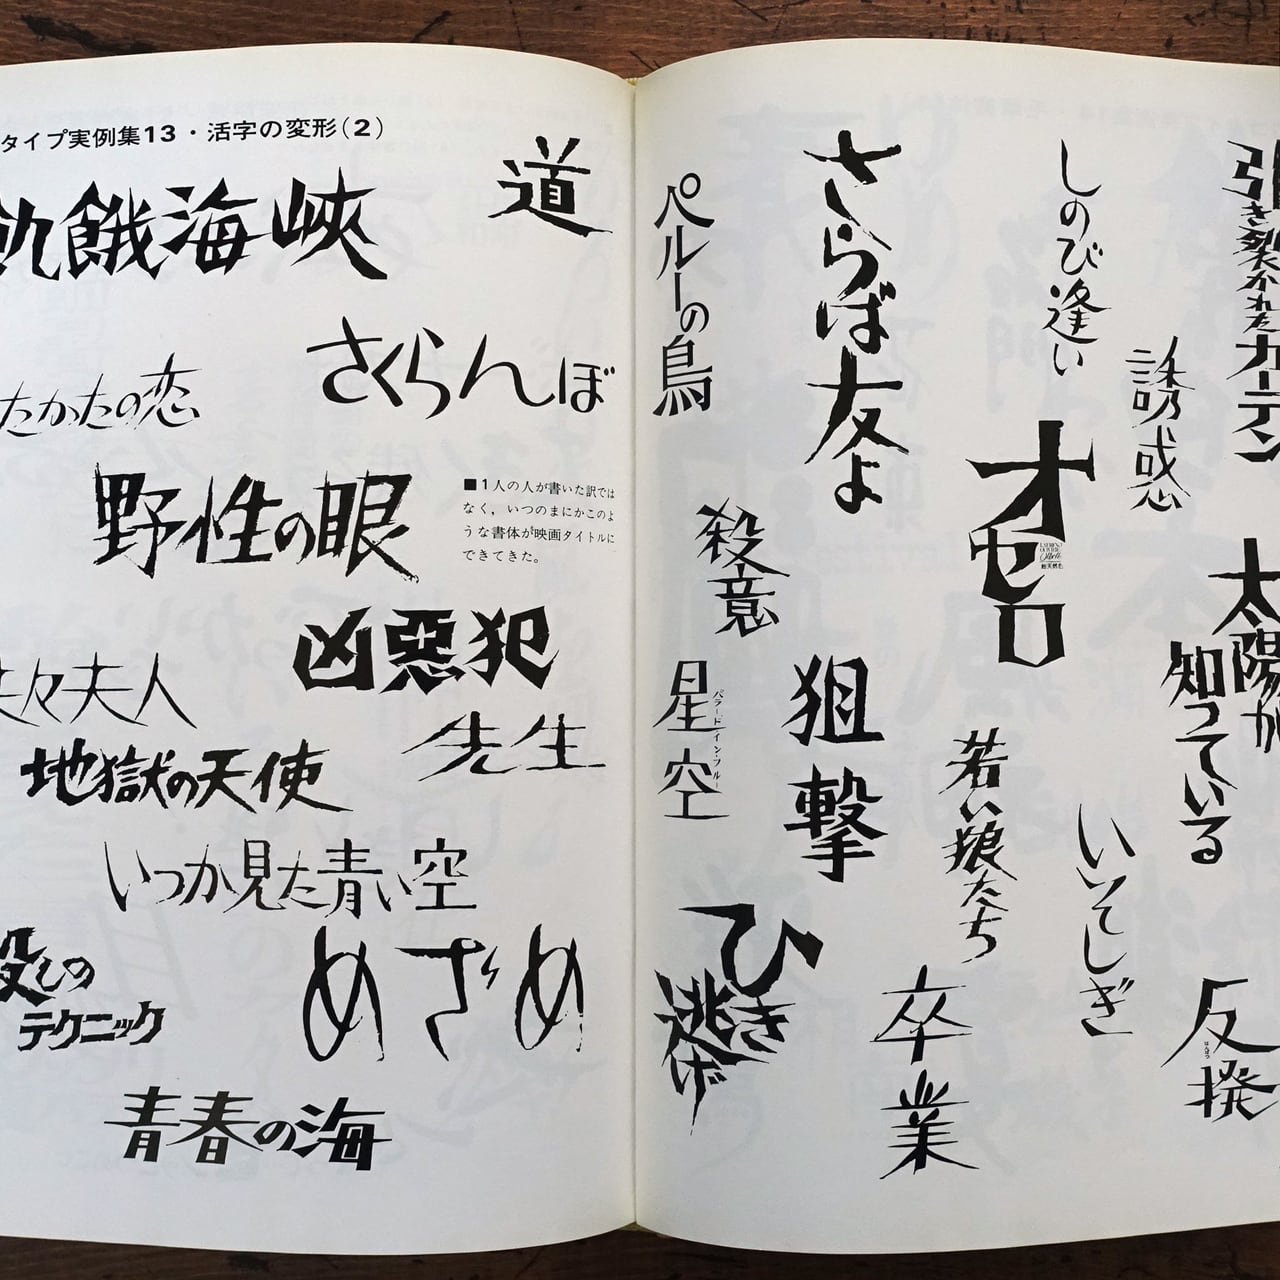 タイプ実例集13・活字の変形(2)
道
飢餓海峡
さくらんぼ
たかたの恋
野性の眼
■1人の人が書いた訳では
なく，いつのまにかこのよ
うな書体が映画タイトルに
できてきた。
凶悪犯
夫人
先生
地獄の天使
いつか見た青い空
殺しの
テクニック
めざめ
青春の海
引き裂かれたカーテン
しのび逢い
さらば友よ
ペルーの鳥
誘惑
オセロ
殺意
太陽が
知っている
星空
パラード・イン・ブルー
狙撃
若い狼たち
いそしぎ
ひき
逃げ
卒業
反撥
はんぱつ